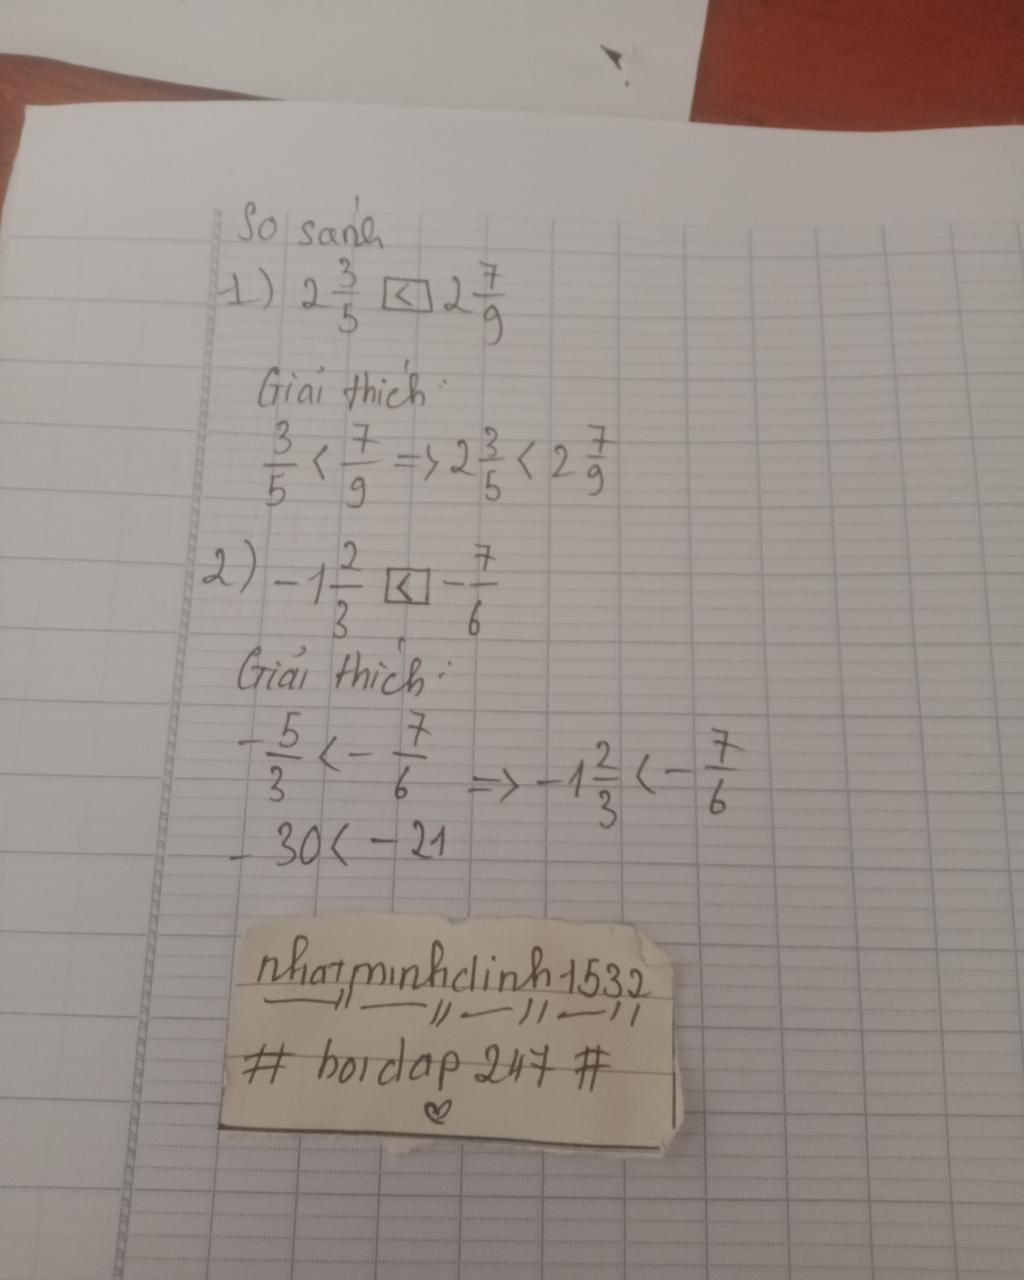 So sánh
1) 2 3/5 < 2 7/9
Giải thích:
3/5 < 7/9 => 2 3/5 < 2 7/9
2) -1 2/3 < - 7/6
Giải thích:
- 5/3 < - 7/6 => -1 2/3 < - 7/6
- 30 < - 21
nhatminhdinh1532
# hoidap 247 #